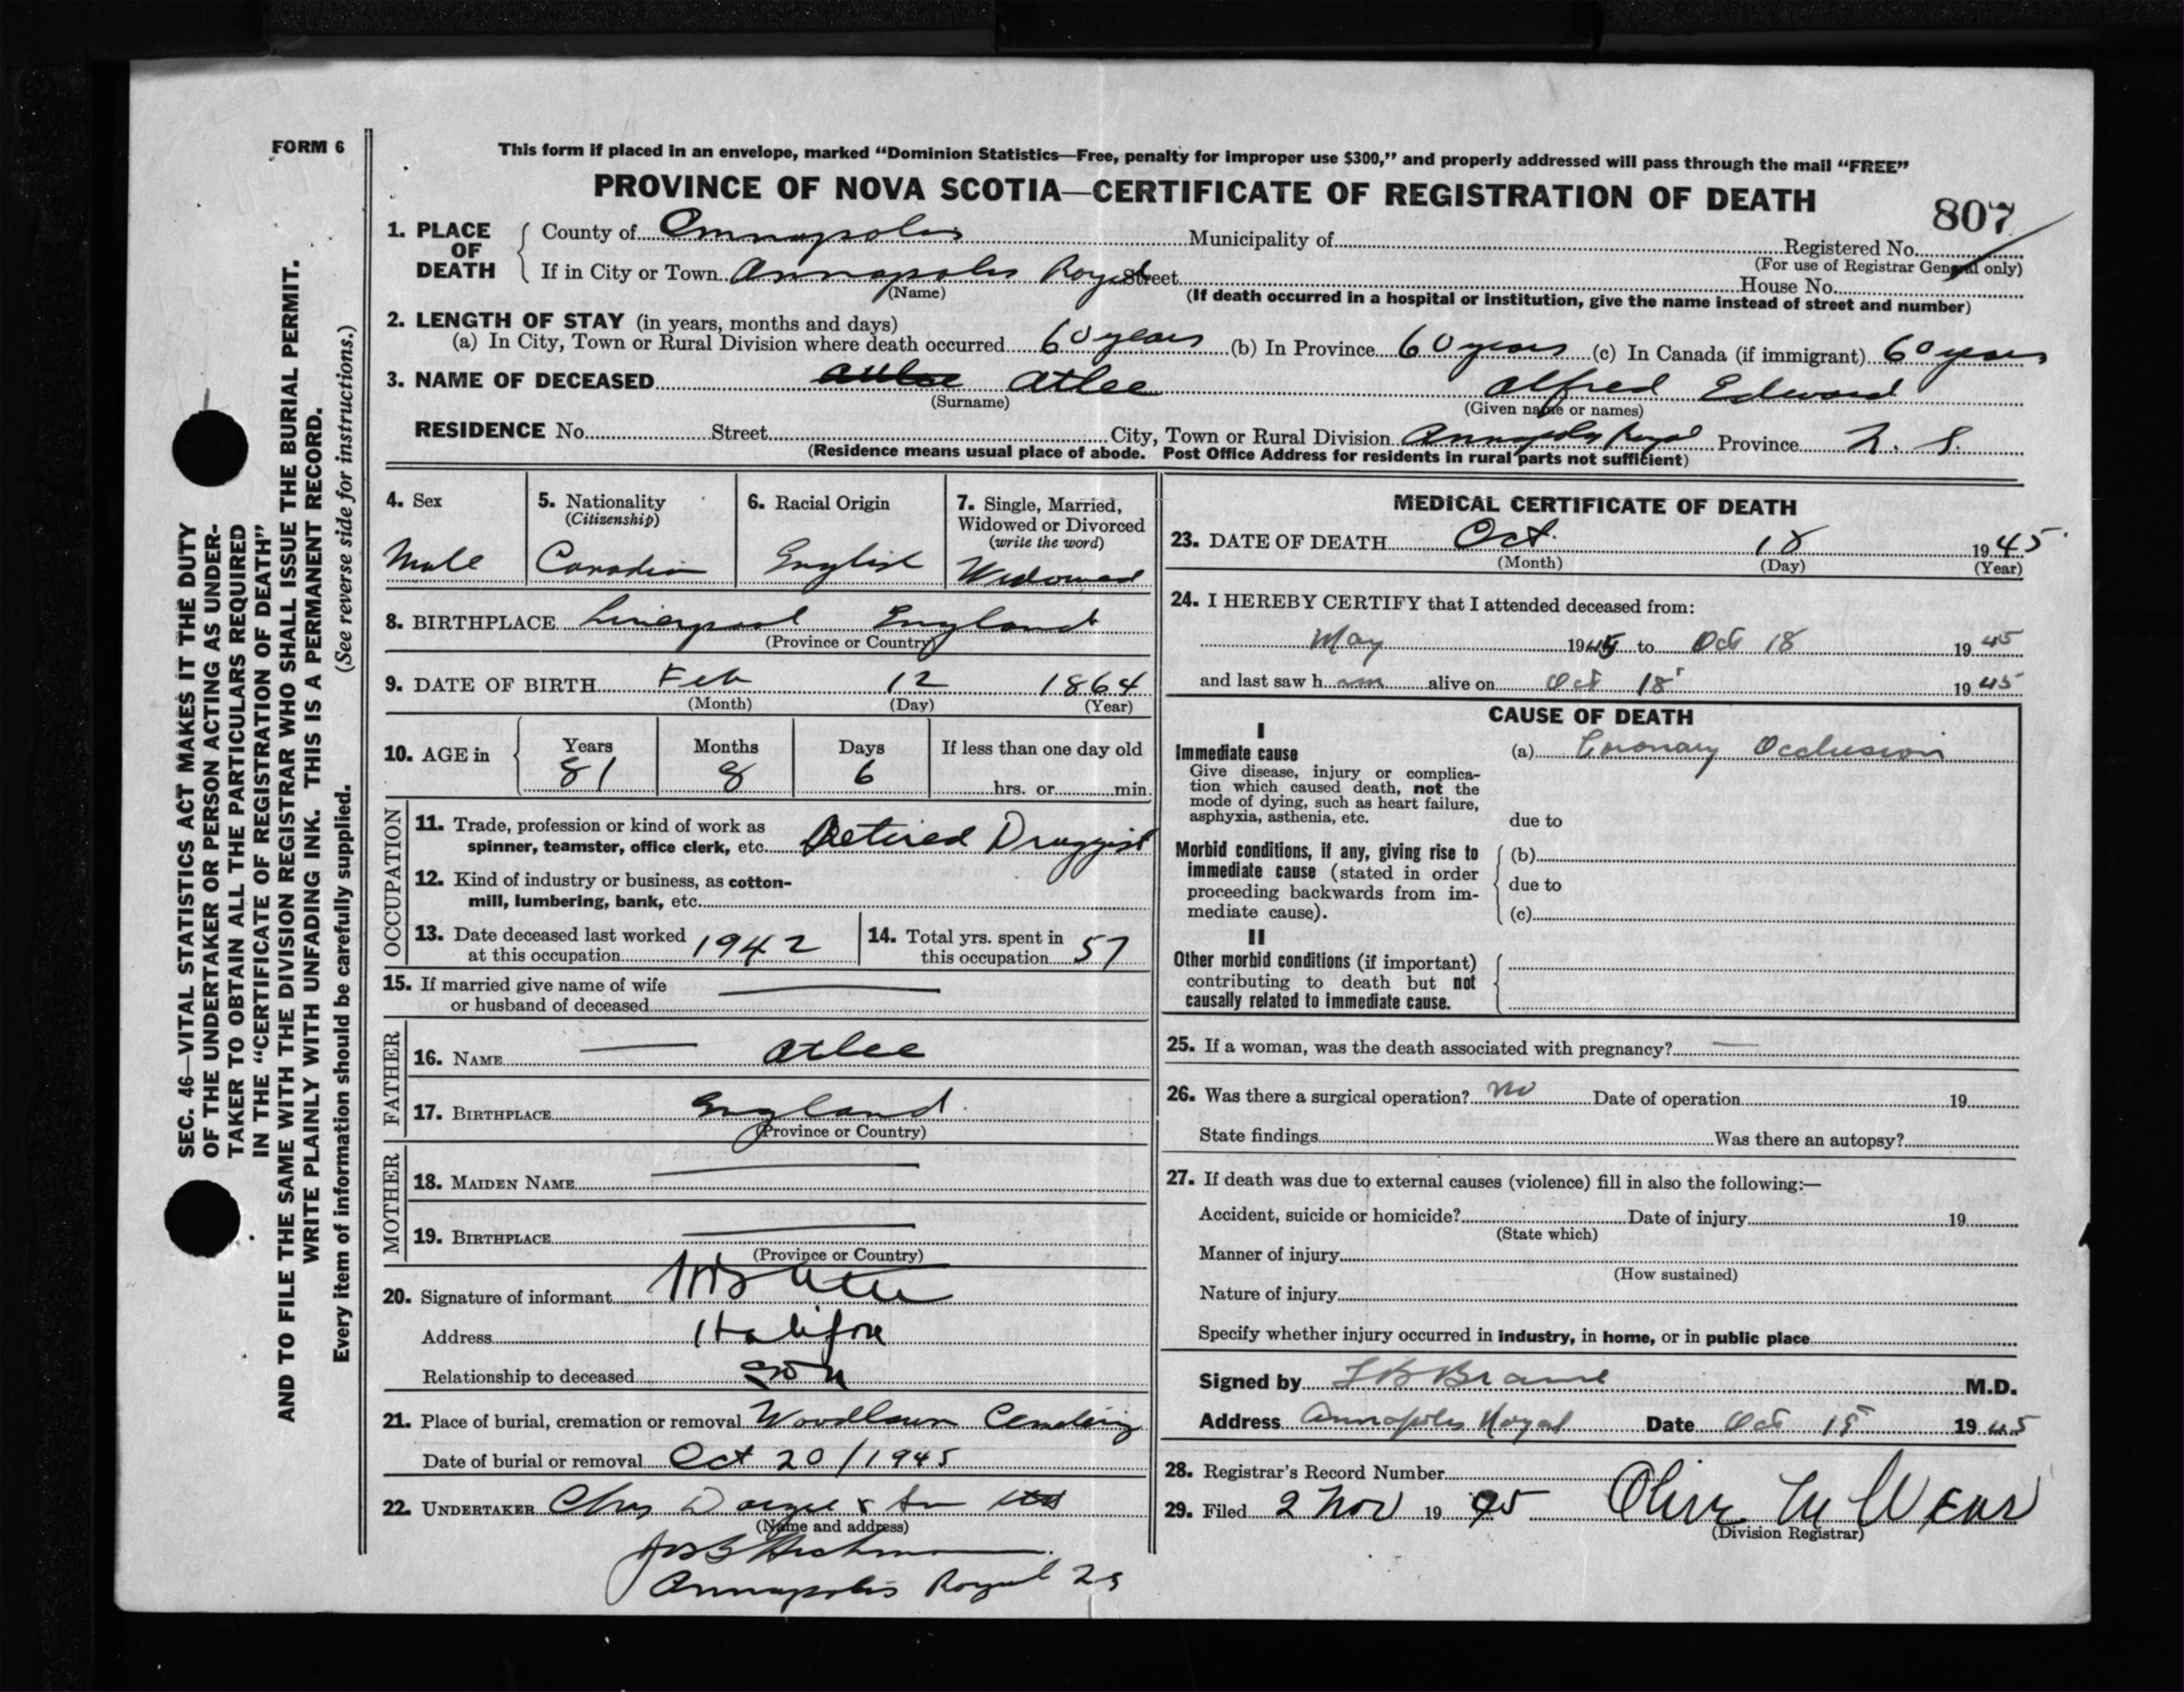 FORM 6
SEC. 46—VITAL STATISTICS ACT MAKES IT THE DUTY
OF THE UNDERTAKER OR PERSON ACTING AS UNDER-
TAKER TO OBTAIN ALL THE PARTICULARS REQUIRED
IN THE "CERTIFICATE OF REGISTRATION OF DEATH"
AND TO FILE THE SAME WITH THE DIVISION REGISTRAR WHO SHALL ISSUE THE BURIAL PERMIT.
WRITE PLAINLY WITH UNFADING INK. THIS IS A PERMANENT RECORD.
Every item of information should be carefully supplied. (See reverse side for instructions.)
This form if placed in an envelope, marked "Dominion Statistics—Free, penalty for improper use $300," and properly addressed will pass through the mail "FREE"
PROVINCE OF NOVA SCOTIA—CERTIFICATE OF REGISTRATION OF DEATH
807
1. PLACE OF DEATH County of Annapolis Municipality of Registered No.
(For use of Registrar General only)
If in City or Town Annapolis Royal Street House No.
(Name) (If death occurred in a hospital or institution, give the name instead of street and number)
2. LENGTH OF STAY (in years, months and days)
(a) In City, Town or Rural Division where death occurred 60 years (b) In Province 60 years (c) In Canada (if immigrant) 60 years
3. NAME OF DECEASED Atlee Alfred Edward
(Surname) (Given name or names)
RESIDENCE No. Street City, Town or Rural Division Annapolis Royal Province N. S.
(Residence means usual place of abode. Post Office Address for residents in rural parts not sufficient)
4. Sex
Male
5. Nationality
(Citizenship)
Canadian
6. Racial Origin
English
7. Single, Married,
Widowed or Divorced
(write the word)
Widowed
8. BIRTHPLACE Liverpool England
(Province or Country)
9. DATE OF BIRTH Feb 12 1864
(Month) (Day) (Year)
10. AGE in Years Months Days If less than one day old
81 8 6 hrs. or min.
OCCUPATION
11. Trade, profession or kind of work as
spinner, teamster, office clerk, etc. Retired Druggist
12. Kind of industry or business, as cotton-
mill, lumbering, bank, etc.
13. Date deceased last worked
at this occupation 1942
14. Total yrs. spent in
this occupation 57
15. If married give name of wife
or husband of deceased
FATHER
16. NAME Atlee
17. BIRTHPLACE England
(Province or Country)
MOTHER
18. MAIDEN NAME
19. BIRTHPLACE
(Province or Country)
20. Signature of informant Atlee
Address Halifax
Relationship to deceased son
21. Place of burial, cremation or removal Woodlawn Cemetery
Date of burial or removal Oct 20/1945
22. UNDERTAKER Chas & Son Ltd
(Name and address)
Annapolis Royal NS
MEDICAL CERTIFICATE OF DEATH
23. DATE OF DEATH Oct. 18 1945
(Month) (Day) (Year)
24. I HEREBY CERTIFY that I attended deceased from:
May 1945 to Oct 18 1945
and last saw h im alive on Oct 18 1945
CAUSE OF DEATH
I
Immediate cause (a) Coronary Occlusion
Give disease, injury or complica-
tion which caused death, not the
mode of dying, such as heart failure,
asphyxia, asthenia, etc.
due to
Morbid conditions, if any, giving rise to
immediate cause (stated in order
proceeding backwards from im-
mediate cause).
(b)
due to
(c)
II
Other morbid conditions (if important)
contributing to death but not
causally related to immediate cause.
25. If a woman, was the death associated with pregnancy?
26. Was there a surgical operation? no Date of operation 19
State findings Was there an autopsy?
27. If death was due to external causes (violence) fill in also the following:—
Accident, suicide or homicide? Date of injury 19
(State which)
Manner of injury
(How sustained)
Nature of injury
Specify whether injury occurred in industry, in home, or in public place
Signed by M.D.
Address Annapolis Royal Date Oct 18 1945
28. Registrar's Record Number
29. Filed 2 Nov 1945
(Division Registrar)